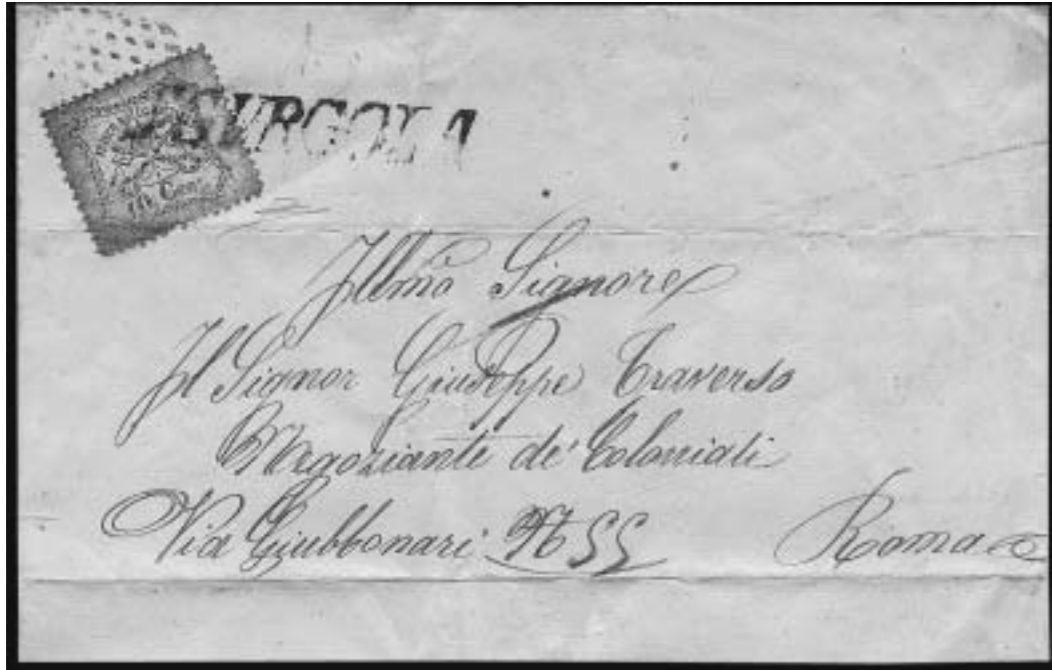 SURGOLA
10 Cent
Illmo Signore
Il Signor Giuseppe Traverso
Negoziante de' Coloniali
Via Giubbonari N 55
Roma